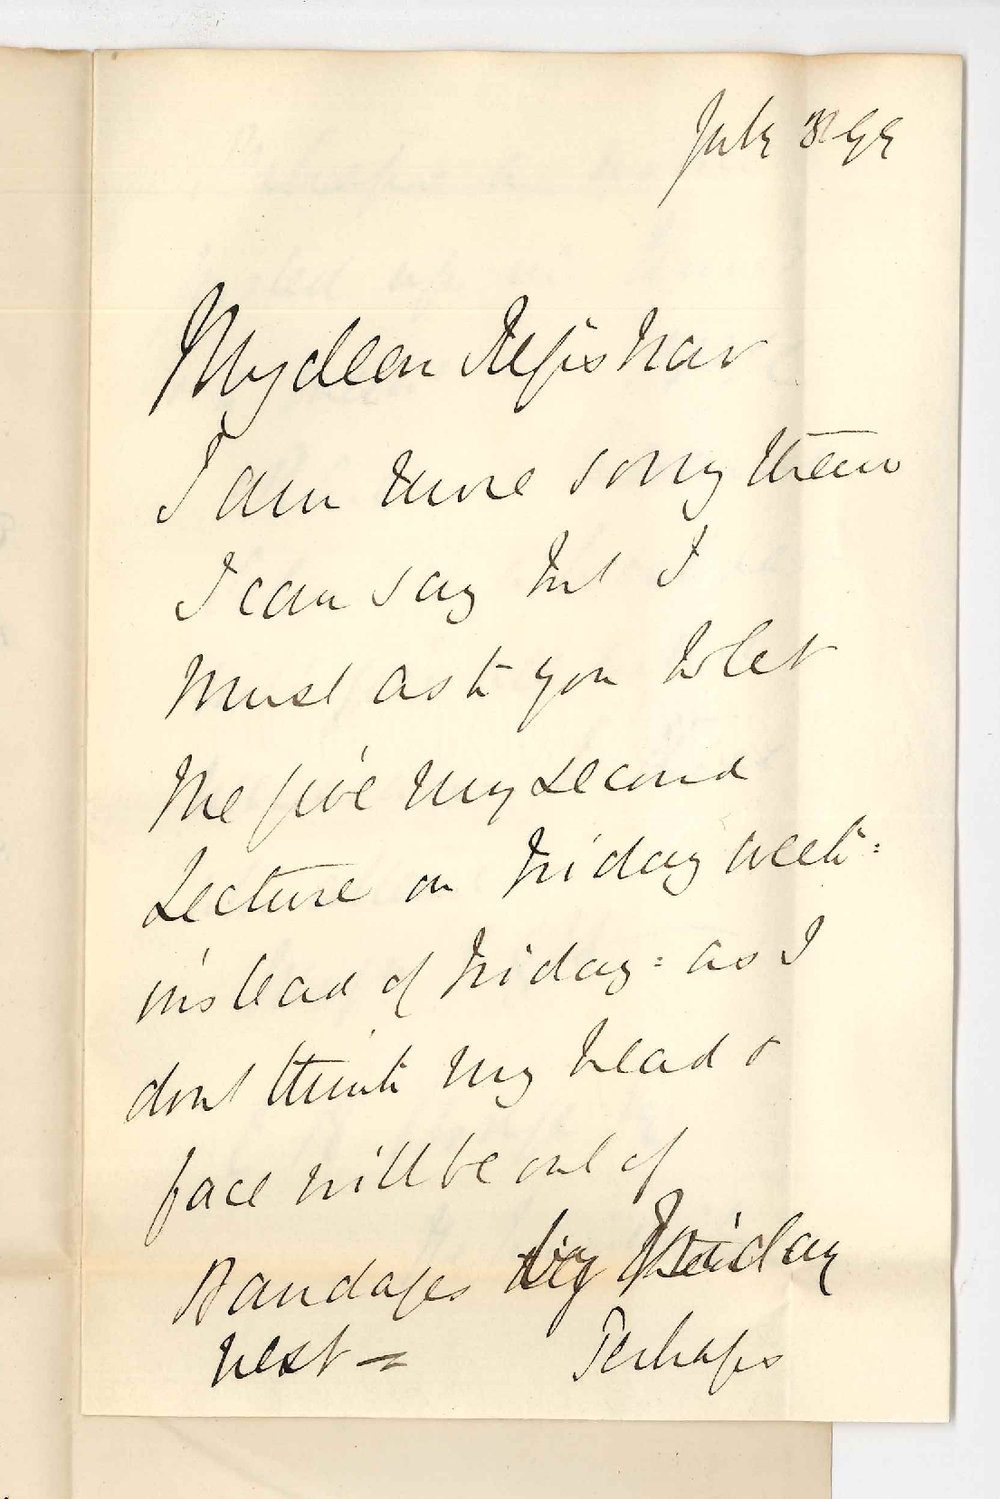 July 99
My dear Registrar
I am more sorry than
I can say but I
Must ask you to let
Me give my second
Lecture on Friday week =
instead of Friday = as I
dont think my head &
face will be out of
Bandages by Friday
next =
Perhaps